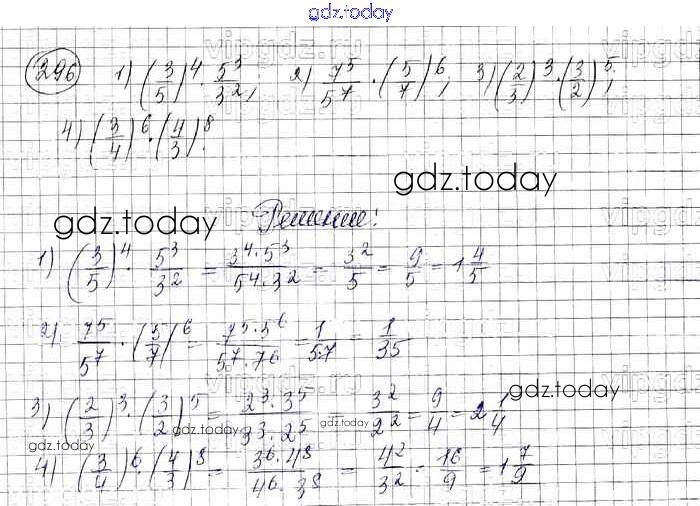 gdz.today
296 1) (3/5)^4 · 5^3/3^2, 2) 7^5/5^7 · (5/7)^6, 3) (2/3)^3 · (3/2)^5;
4) (3/4)^6 · (4/3)^8.
gdz.today
gdz.today
Решение:
1) (3/5)^4 · 5^3/3^2 = 3^4·5^3/5^4·3^2 = 3^2/5 = 9/5 = 1 4/5
2) 7^5/5^7 · (5/7)^6 = 7^5·5^6/5^7·7^6 = 1/5·7 = 1/35
gdz.today
3) (2/3)^3 · (3/2)^5 = 2^3·3^5/3^3·2^5 = 3^2/2^2 = 9/4 = 2 1/4
gdz.today
gdz.today
4) (3/4)^6 · (4/3)^8 = 3^6·4^8/4^6·3^8 = 4^2/3^2 = 16/9 = 1 7/9